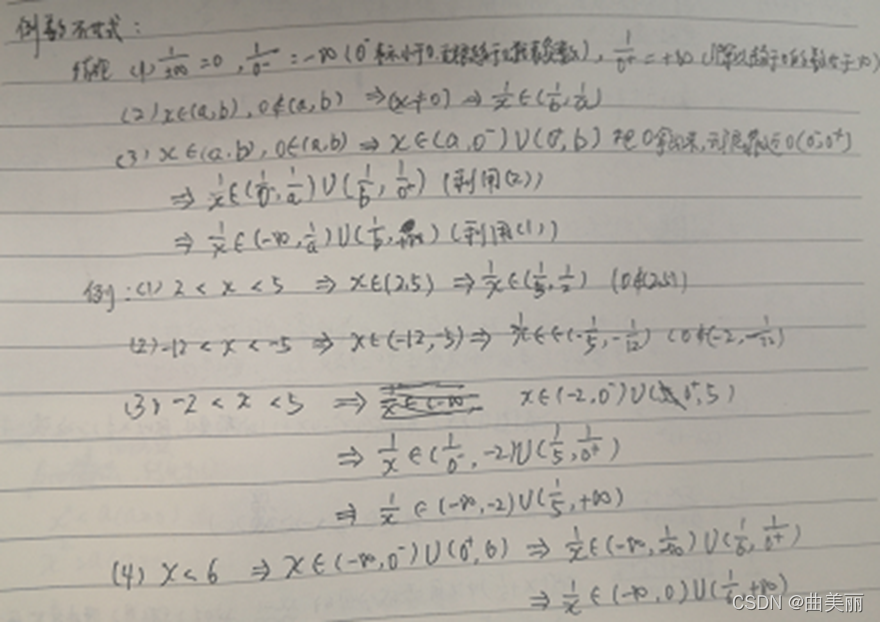 倒数不等式:
结论 (1) 1/±∞ = 0, 1/0⁻ = -∞ (0⁻表示小于0,无限趋于0), 1/0⁺ = +∞
(2) x∈(a,b), 0∉(a,b) ⇒ (x≠0) ⇒ 1/x ∈ (1/b, 1/a)
(3) x∈(a,b), 0∈(a,b) ⇒ x∈(a,0⁻)∪(0⁺,b) 把0拿出来,无限靠近0(0⁻,0⁺)
⇒ 1/x ∈ (1/0⁻, 1/a)∪(1/b, 1/0⁺) (利用(2))
⇒ 1/x ∈ (-∞, 1/a)∪(1/b, +∞) (利用(1))
例: (1) 2 < x < 5 ⇒ x∈(2,5) ⇒ 1/x ∈ (1/5, 1/2) (0∉(2,5))
(2) -12 < x < -5 ⇒ x∈(-12,-5) ⇒ 1/x ∈ ∈ (-1/5, -1/12) (0∉(-2, -1/12)
(3) -2 < x < 5 ⇒ x∈(-2,0⁻)∪(0⁺,5)
⇒ 1/x ∈ (1/0⁻, -2)∪(1/5, 1/0⁺)
⇒ 1/x ∈ (-∞,-2)∪(1/5, +∞)
(4) x < 6 ⇒ x∈(-∞,0⁻)∪(0⁺,6) ⇒ 1/x ∈ (-∞, 1/-∞)∪(1/6, 1/0⁺)
⇒ 1/x ∈ (-∞,0)∪(1/6, +∞)
CSDN @曲美丽